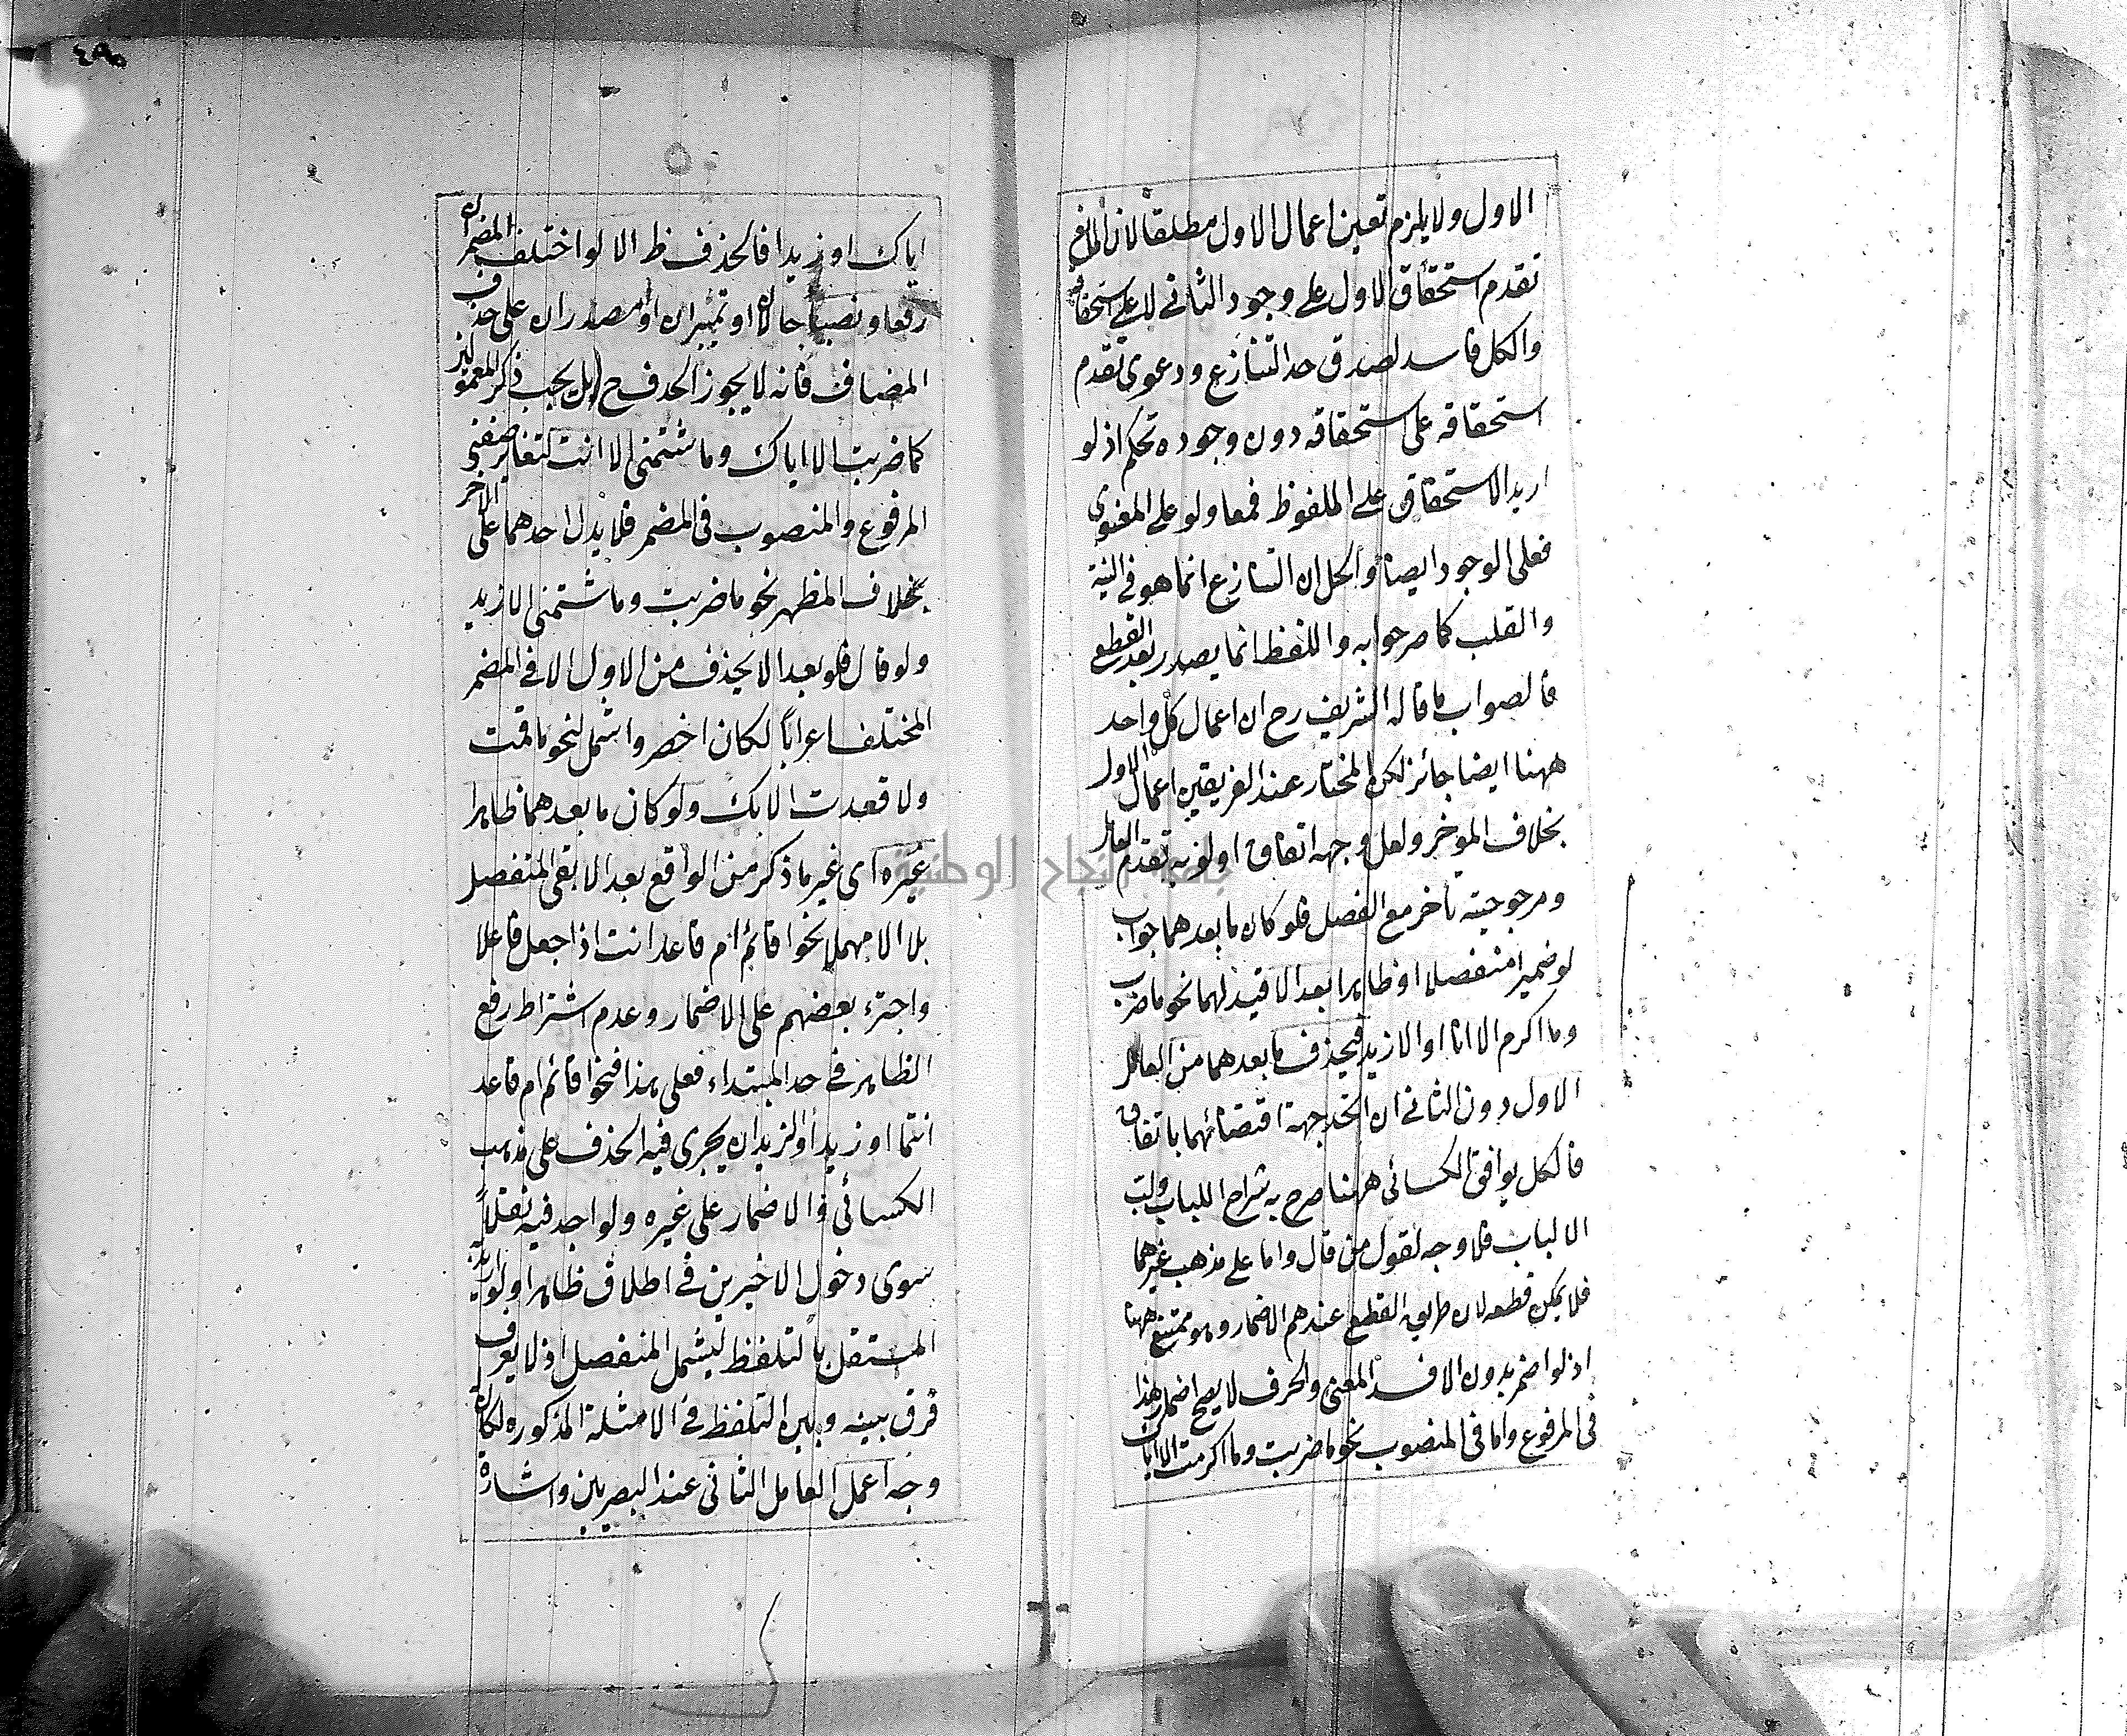 الاول ولا يلزم تعين اعمال الاول مطلقا لان المانع
تقدم استحقاق الاول على وجود الثانى لا على استحقاقه
والكل فاسد لصدق حد التنازع ودعوى تقدم
استحقاقه على استحقاقه دون وجوده تحكم اذ لو
اريد الاستحقاق على الملفوظ فمعا ولو على المعنوى
فعلى الوجود ايضا والحل ان التنازع انما هو فى النية
والقلب كما صرحوا به واللفظ انما يصدر بعد القطع
فالصواب ما قاله الشريف رح ان اعمال كل واحد
ههنا ايضا جائز لكن المختار عند الفريقين اعمال الاول
بخلاف الموخر ولعل وجهه اتفاق اولوية تقدم العامل
ومرجوحيته تأخر مع الفصل فلو كان ما بعدهما جواب
لو ضميرا منفصلا او ظاهرا بعد الا قيد لهما نحو ما ضرب
وما اكرم الا انا او الا زيد فيحذف ما بعدهما من العامل
الاول دون الثانى ان اتحد جهة اقتضائهما باتفاق
فالكل يوافق الكسائى ههنا صرح به شراح اللباب ولب
الالباب فلا وجه لقول من قال واما على مذهب غيرهما
فلا يمكن قطعه لان طريق القطع عندهم الاضمار وهو ممتنع ههنا
اذ لو اضمر بدون الا فسد المعنى والحرف لا يصح اضماره هذا
فى المرفوع واما فى المنصوب نحو ما ضربت وما اكرمت الا اياك
٤٩٥
اياك او زيدا فالحذف ظ الا لو اختلف المضمران
رفعا ونصبا حالان او تميزان او مصدران على حذف
المضاف فانه لا يجوز الحذف ح بل يجب ذكر المعمولين
كما ضربت الا اياك وما شتمنى الا انت لتغاير صيغتى
المرفوع والمنصوب فى المضمر فلا يدل احدهما على الاخر
بخلاف المظهر نحو ما ضربت وما شتمنى الا زيد
ولو قال فلو بعد الا يحذف من الاول الا فى المضمر
المختلف اعرابا لكان اخصر واشمل لنحو ما قمت
ولا قعدت الا بك ولو كان ما بعدهما ظاهرا
غيره اى غير ما ذكر من الواقع بعد الا بقى المنفصل
بلا الا مهملا نحو اقائم ام قاعد انت اذا جعل فاعلا
واجترء بعضهم على الاضمار وعدم اشتراط رفع
الظاهر فى حد المبتداء فعلى هذا فنحو اقائم ام قاعد
انتما او زيد او الزيدان يجرى فيه الحذف على مذهب
الكسائى والاضمار على غيره ولو اجد فيه نقلا
سوى دخول الاخيرين فى اطلاق ظاهرا ولو اريد
المستقل بالتلفظ ليشمل المنفصل اذ لا يعرف
فرق بينه وبين التلفظ فى الامثلة المذكورة لكان
وجه اعمل العامل الثانى عند البصريين واشارة
جامعة النجاح الوطنية